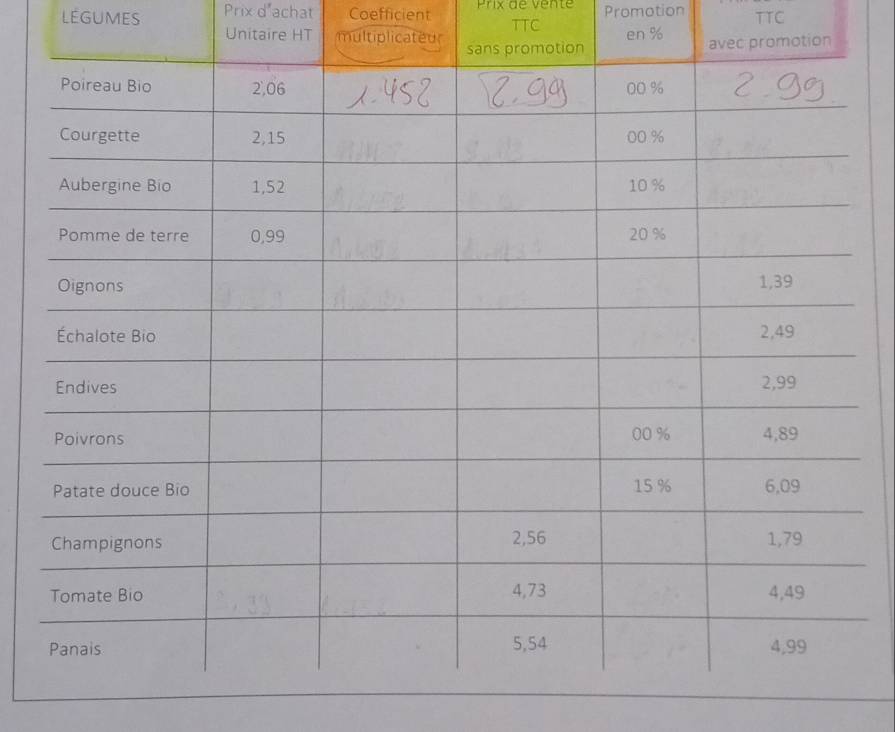 LÉGUMES
Prix d'achat
Unitaire HT
Coefficient
multiplicateur
Prix de vente
TTC
sans promotion
Promotion
en %
TTC
avec promotion
Poireau Bio 2,06 1.452 2.99 00 % 2.99
Courgette 2,15 00 %
Aubergine Bio 1,52 10 %
Pomme de terre 0,99 20 %
Oignons 1,39
Échalote Bio 2,49
Endives 2,99
Poivrons 00 % 4,89
Patate douce Bio 15 % 6,09
Champignons 2,56 1,79
Tomate Bio 4,73 4,49
Panais 5,54 4,99